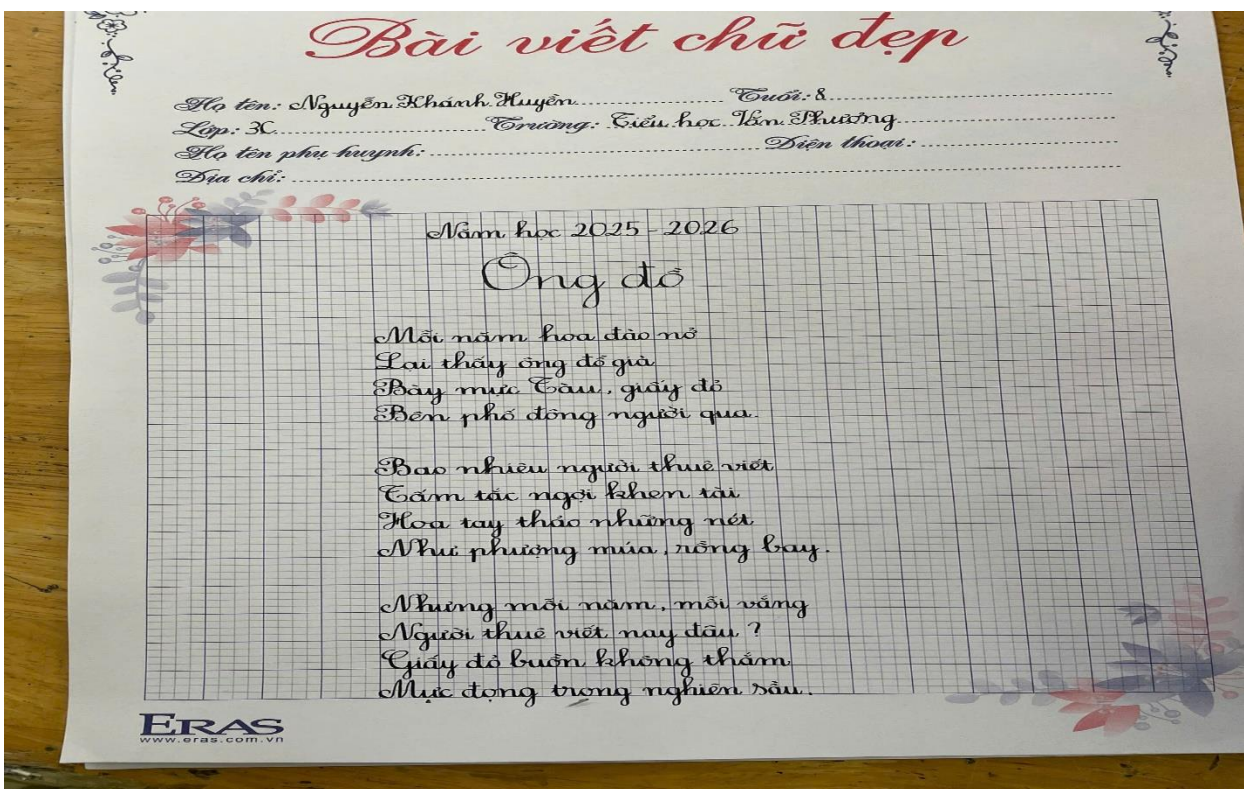 Bài viết chữ đẹp
Họ tên: Nguyễn Khánh Huyền Tuổi: 8
Lớp: 3C Trường: Tiểu học Vấn Phương
Họ tên phụ huynh: Điện thoại:
Địa chỉ:
Năm học 2025 - 2026
Ông đồ
Mỗi năm hoa đào nở
Lại thấy ông đồ già
Bày mực Tàu, giấy đỏ
Bên phố đông người qua.
Bao nhiêu người thuê viết
Tấm tắc ngợi khen tài
Hoa tay thảo những nét
Như phượng múa, rồng bay.
Nhưng mỗi năm, mỗi vắng
Người thuê viết nay đâu?
Giấy đỏ buồn không thắm
Mực đọng trong nghiên sầu.
ERAS
www.eras.com.vn